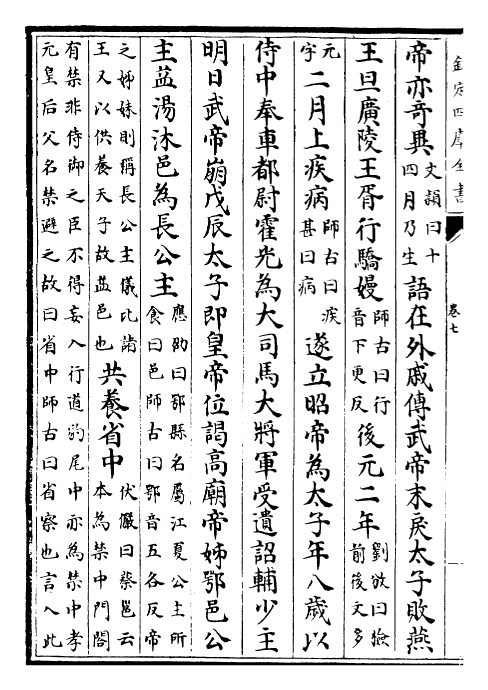 欽定四庫全書
卷七
帝亦奇異文穎曰十四月乃生語在外戚傳武帝末戾太子敗燕
王旦廣陵王胥行驕嫚師古曰行音下更反後元二年劉攽曰檢前後文多
元字二月上疾病師古曰疾甚曰病遂立昭帝為太子年八歲以
侍中奉車都尉霍光為大司馬大將軍受遺詔輔少主
明日武帝崩戊辰太子即皇帝位謁高廟帝姊鄂邑公
主益湯沐邑為長公主應劭曰鄂縣名屬江夏公主所食曰邑師古曰鄂音五各反帝
之姊妹則稱長公主儀比諸王又以供養天子故益邑也共養省中伏儼曰蔡邕云本為禁中門閤
有禁非侍御之臣不得妄入行道豹尾中亦為禁中孝元皇后父名禁避之故曰省中師古曰省察也言入此